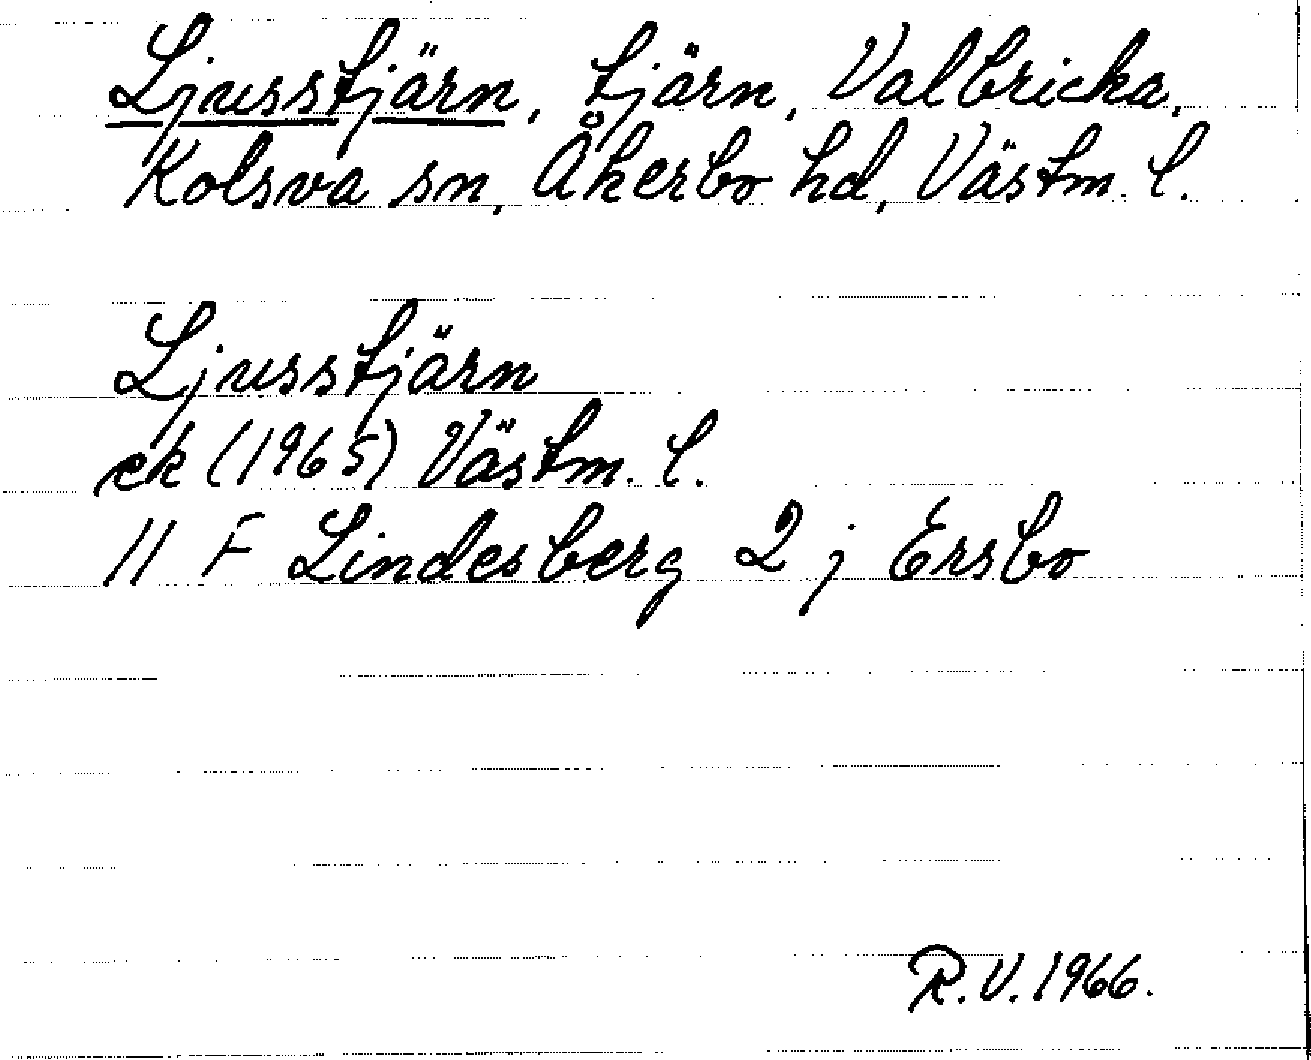 Ljusstjärn, tjärn, Valbricka,
Kolsva sn, Åkerbo hd, Västm. l.
Ljusstjärn
ek (1965) Västm. l.
11 F Lindesberg 2 j Ersbo
R.V. 1966.